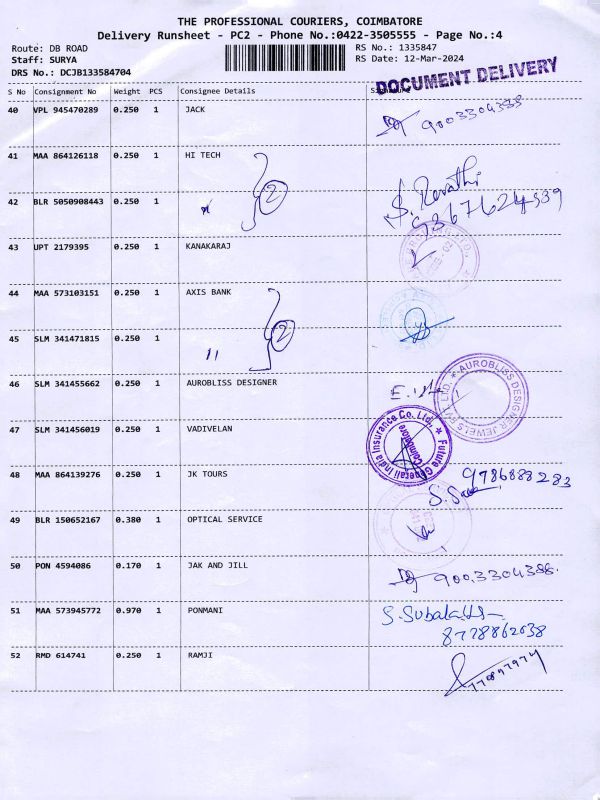 THE PROFESSIONAL COURIERS, COIMBATORE
Delivery Runsheet - PC2 - Phone No.:0422-3505555 - Page No.:4
Route: DB ROAD RS No.: 1335847
Staff: SURYA RS Date: 12-Mar-2024
DRS No.: DCJB133584704
DOCUMENT DELIVERY
S No Consignment No Weight PCS Consignee Details
40 VPL 945470289 0.250 1 JACK 9003304388
41 MAA 864126118 0.250 1 HI TECH
2
42 BLR 5050908443 0.250 1 S. Revathi
43 UPT 2179395 0.250 1 KANAKARAJ
44 MAA 573103151 0.250 1 AXIS BANK
2
45 SLM 341471815 0.250 1 "
46 SLM 341455662 0.250 1 AUROBLISS DESIGNER
AUROBLISS DESIGNER JEWELS PVT. LTD.
47 SLM 341456019 0.250 1 VADIVELAN
Future Generali India Insurance Co. Ltd., Coimbatore
48 MAA 864139276 0.250 1 JK TOURS 9786888283
49 BLR 150652167 0.380 1 OPTICAL SERVICE
50 PON 4594086 0.170 1 JAK AND JILL 9003304388.
51 MAA 573945772 0.970 1 PONMANI
8778862038
52 RMD 614741 0.250 1 RAMJI